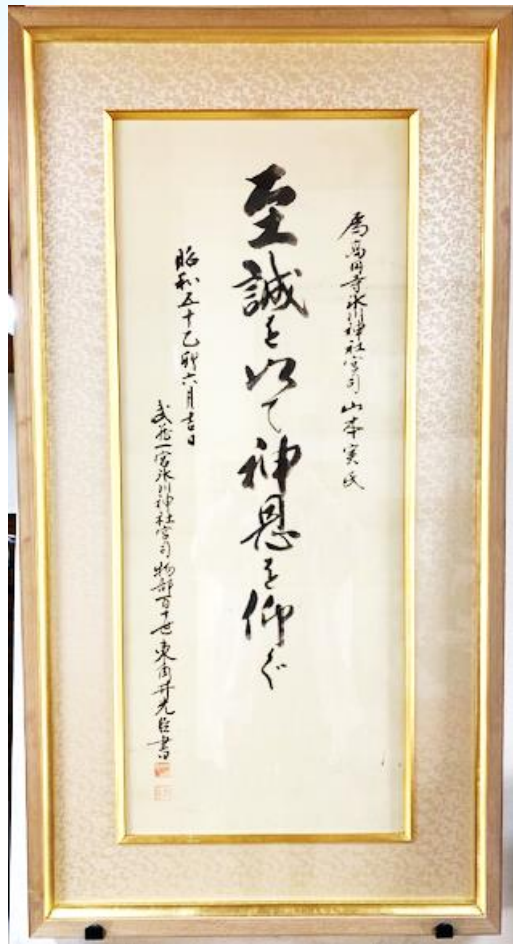 為高円寺氷川神社宮司山本実氏
至誠を以て神恩を仰ぐ
昭和五十乙卯六月吉日
武蔵一宮氷川神社宮司物部百十世東角井光臣書